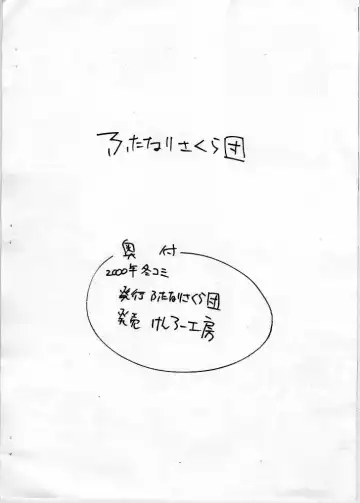 ふたなりさくら団
奥付
2000年冬コミ
発行 ふたなりさくら団
発売 けんろー工房